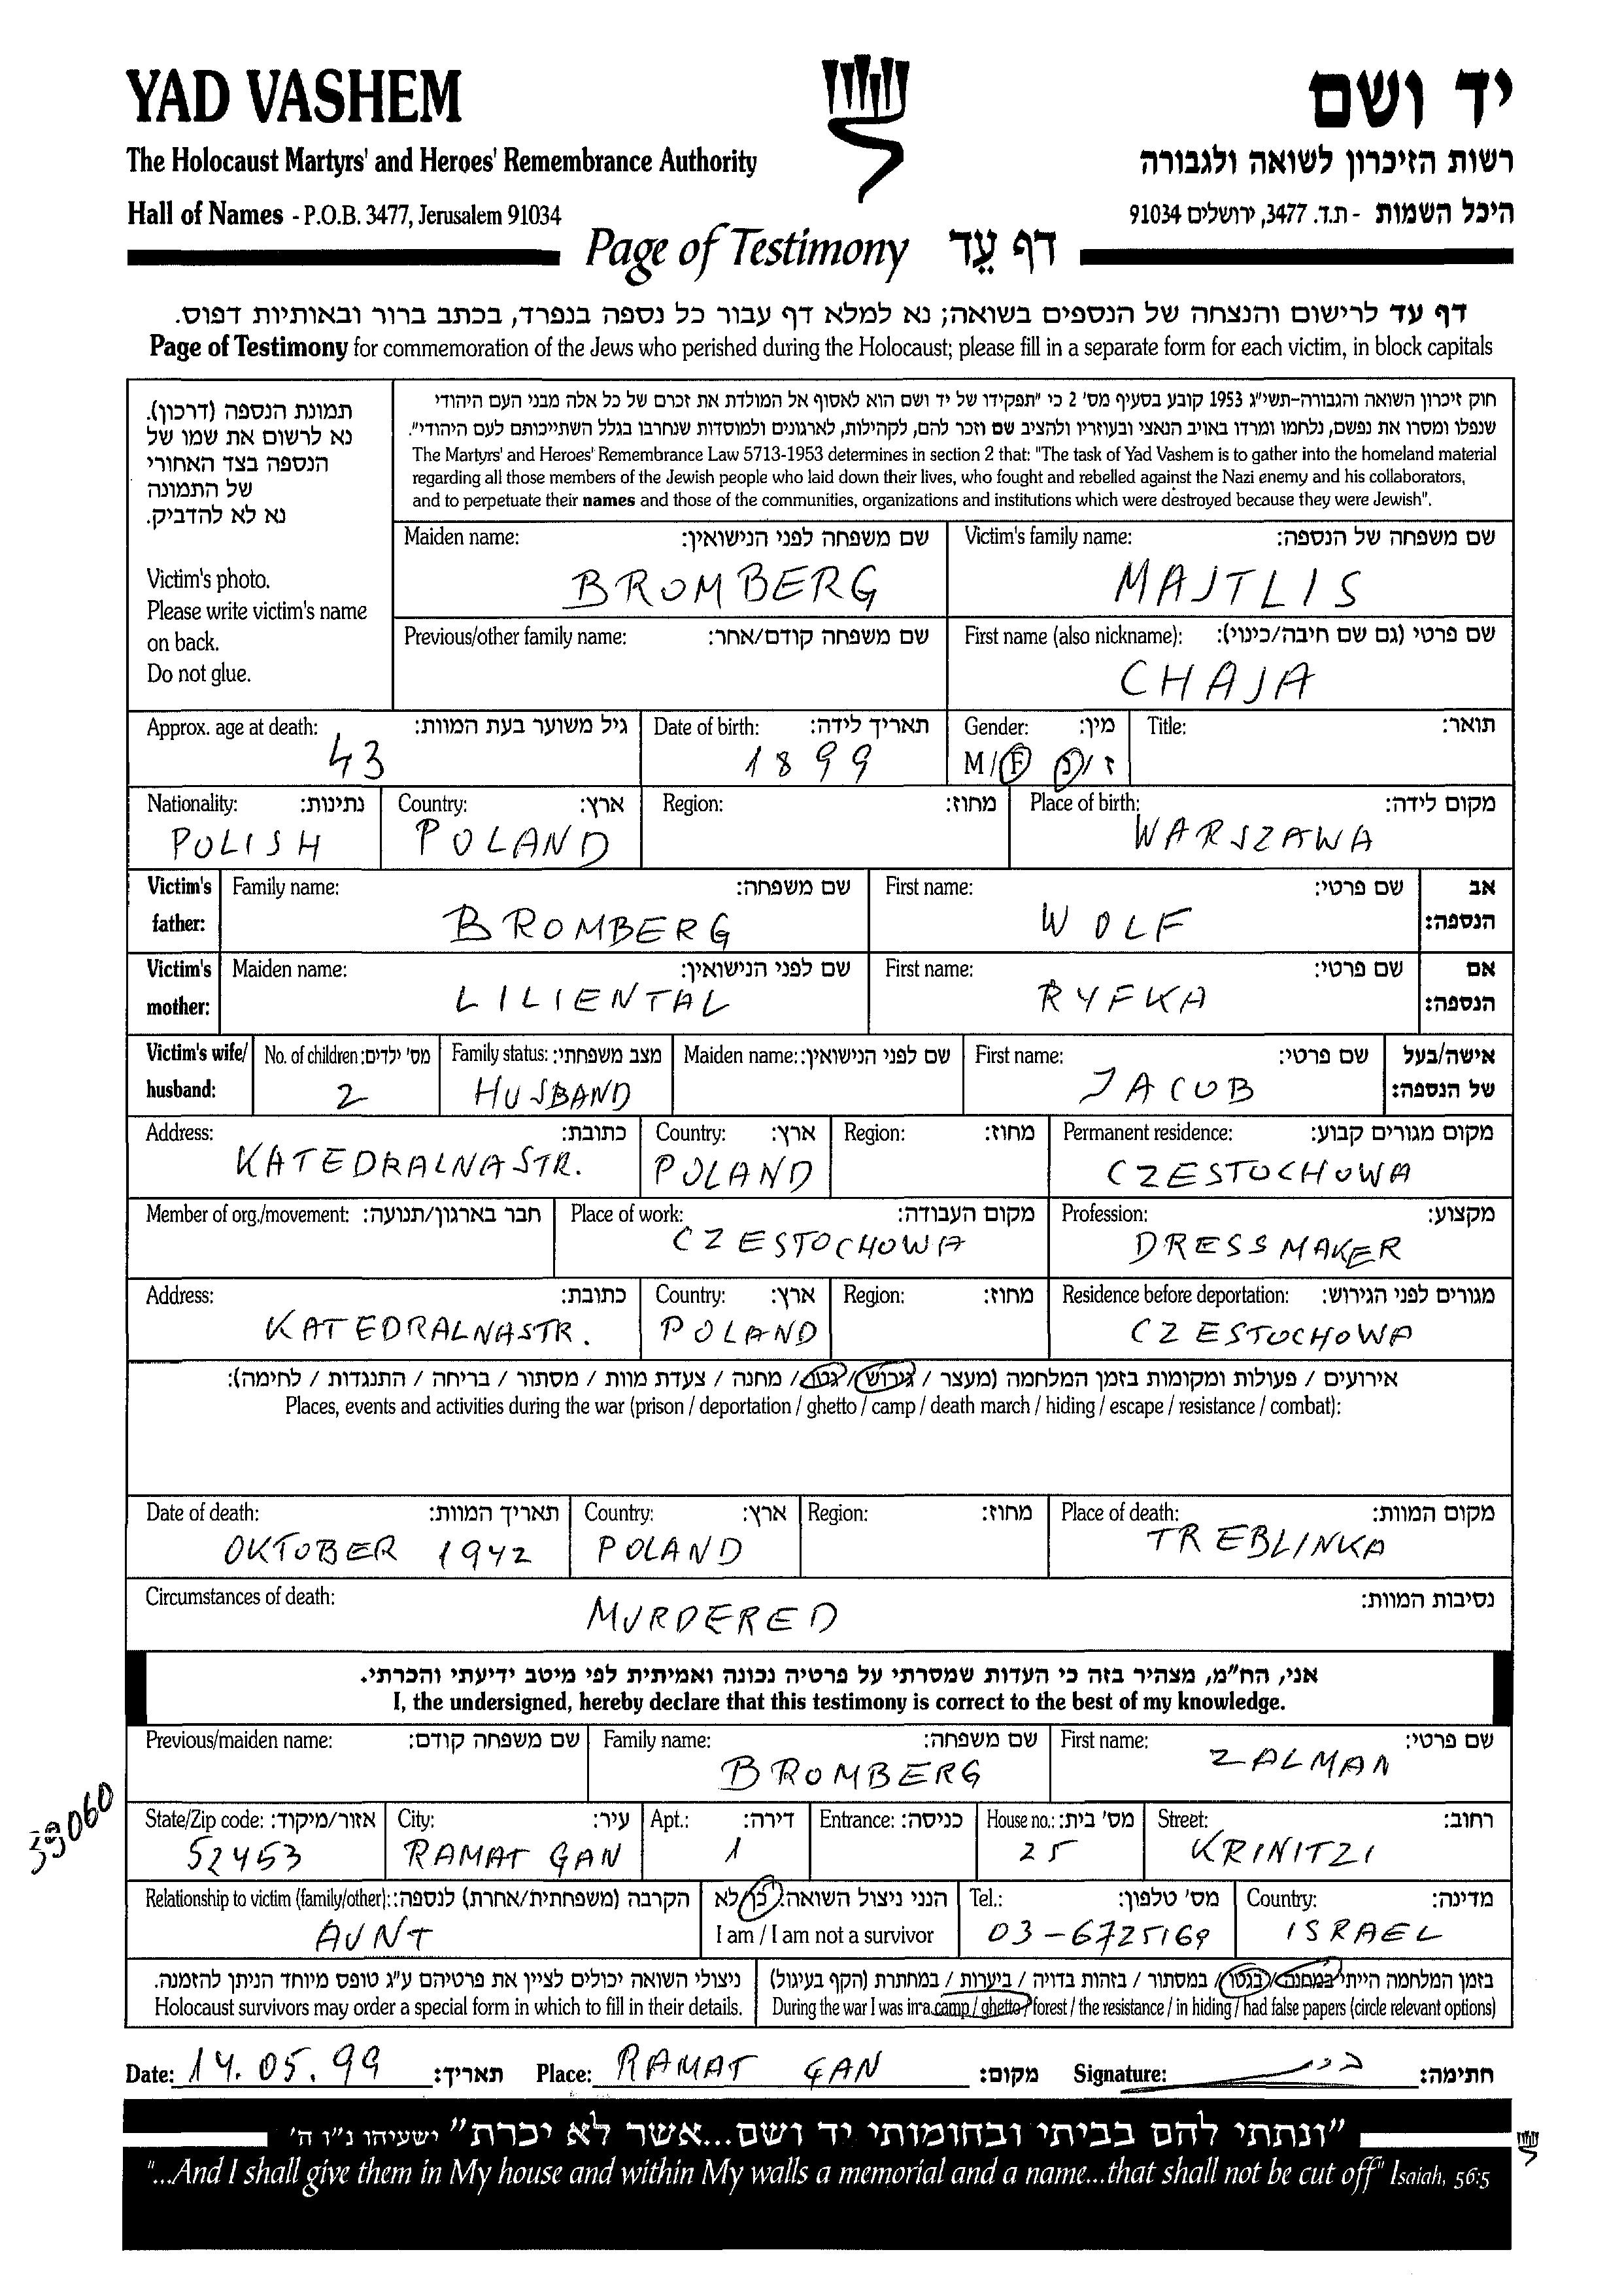 YAD VASHEM
יד ושם
The Holocaust Martyrs' and Heroes' Remembrance Authority
רשות הזיכרון לשואה ולגבורה
Hall of Names - P.O.B. 3477, Jerusalem 91034
היכל השמות - ת.ד. 3477, ירושלים 91034
Page of Testimony דף עֵד
דף עד לרישום והנצחה של הנספים בשואה; נא למלא דף עבור כל נספה בנפרד, בכתב ברור ובאותיות דפוס.
Page of Testimony for commemoration of the Jews who perished during the Holocaust; please fill in a separate form for each victim, in block capitals
תמונת הנספה (דרכון).
נא לרשום את שמו של
הנספה בצד האחורי
של התמונה
נא לא להדביק.
Victim's photo.
Please write victim's name
on back.
Do not glue.
חוק זיכרון השואה והגבורה-תשי"ג 1953 קובע בסעיף מס' 2 כי "תפקידו של יד ושם הוא לאסוף אל המולדת את זכרם של כל אלה מבני העם היהודי
שנפלו ומסרו את נפשם, נלחמו ומרדו באויב הנאצי ובעוזריו ולהציב שם וזכר להם, לקהילות, לארגונים ולמוסדות שנחרבו בגלל השתייכותם לעם היהודי".
The Martyrs' and Heroes' Remembrance Law 5713-1953 determines in section 2 that: "The task of Yad Vashem is to gather into the homeland material
regarding all those members of the Jewish people who laid down their lives, who fought and rebelled against the Nazi enemy and his collaborators,
and to perpetuate their names and those of the communities, organizations and institutions which were destroyed because they were Jewish".
Maiden name: שם משפחה לפני הנישואין:
BROMBERG
Victim's family name: שם משפחה של הנספה:
MAJTLIS
Previous/other family name: שם משפחה קודם/אחר:
First name (also nickname): שם פרטי (גם שם חיבה/כינוי):
CHAJA
Approx. age at death: גיל משוער בעת המוות:
43
Date of birth: תאריך לידה:
1899
Gender: מין:
M/F ז/נ
Title: תואר:
Nationality: נתינות:
POLISH
Country: ארץ:
POLAND
Region: מחוז:
Place of birth: מקום לידה:
WARSZAWA
Victim's father:
Family name: שם משפחה:
BROMBERG
First name: שם פרטי:
WOLF
אב הנספה:
Victim's mother:
Maiden name: שם לפני הנישואין:
LILIENTAL
First name: שם פרטי:
RYFKA
אם הנספה:
Victim's wife/ husband:
No. of children: מס' ילדים:
2
Family status: מצב משפחתי:
HUSBAND
Maiden name: שם לפני הנישואין:
First name: שם פרטי:
JACOB
אישה/בעל של הנספה:
Address: כתובת:
KATEDRALNASTR.
Country: ארץ:
POLAND
Region: מחוז:
Permanent residence: מקום מגורים קבוע:
CZESTOCHOWA
Member of org./movement: חבר בארגון/תנועה:
Place of work: מקום העבודה:
CZESTOCHOWA
Profession: מקצוע:
DRESSMAKER
Address: כתובת:
KATEDRALNASTR.
Country: ארץ:
POLAND
Region: מחוז:
Residence before deportation: מגורים לפני הגירוש:
CZESTOCHOWA
אירועים / פעולות ומקומות בזמן המלחמה (מעצר / גירוש / גטו / מחנה / צעדת מוות / מסתור / בריחה / התנגדות / לחימה):
Places, events and activities during the war (prison / deportation / ghetto / camp / death march / hiding / escape / resistance / combat):
Date of death: תאריך המוות:
OKTOBER 1942
Country: ארץ:
POLAND
Region: מחוז:
Place of death: מקום המוות:
TREBLINKA
Circumstances of death: נסיבות המוות:
MURDERED
אני, הח"מ, מצהיר בזה כי העדות שמסרתי על פרטיה נכונה ואמיתית לפי מיטב ידיעתי והכרתי.
I, the undersigned, hereby declare that this testimony is correct to the best of my knowledge.
Previous/maiden name: שם משפחה קודם:
Family name: שם משפחה:
BROMBERG
First name: שם פרטי:
ZALMAN
State/Zip code: אזור/מיקוד:
52453
City: עיר:
RAMAT GAN
Apt.: דירה:
1
Entrance: כניסה:
House no.: מס' בית:
25
Street: רחוב:
KRINITZI
Relationship to victim (family/other): הקרבה (משפחתית/אחרת) לנספה:
AUNT
הנני ניצול השואה: כן/לא
I am / I am not a survivor
Tel.: מס' טלפון:
03-6725169
Country: מדינה:
ISRAEL
ניצולי השואה יכולים לציין את פרטיהם ע"ג טופס מיוחד הניתן להזמנה.
Holocaust survivors may order a special form in which to fill in their details.
בזמן המלחמה הייתי במחנה / בגטו / במסתור / בזהות בדויה / ביערות / במחתרת (הקף בעיגול)
During the war I was in a camp / ghetto / forest / the resistance / in hiding / had false papers (circle relevant options)
Date: 14.05.99 תאריך: Place: RAMAT GAN מקום: Signature: חתימה:
"ונתתי להם בביתי ובחומותי יד ושם...אשר לא יכרת" ישעיהו נ"ו ה'
"...And I shall give them in My house and within My walls a memorial and a name...that shall not be cut off" Isaiah, 56:5